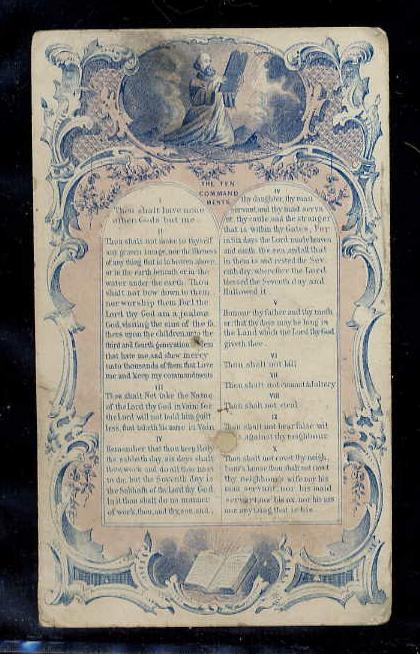 THE TEN
COMMAND
MENTS
I
Thou shalt have none
other Gods but me.
II
Thou shalt not make to thyself
any graven image, nor the likeness
of any thing that is in heaven above,
or in the earth beneath or in the
water under the earth. Thou
shalt not bow down to them,
nor worship them For I the
Lord thy God am a jealous
God, visiting the sins of the fa
thers upon the children unto the
third and fourth generation of them
that hate me, and show mercy
unto thousands of them that love
me and keep my commandments
III
Thou shalt Not take the Name
of the Lord thy God in Vain: for
the Lord will not hold him guilt
less, that taketh his name in Vain
IV
Remember that thou keep Holy
the sabbath day, six days shalt
thou work and do all thou hast
to do, but the Seventh day is
the Sabbath of the Lord thy God
In it thou shalt do no manner
of work, thou, and thy son, and,
IV
thy daughter, thy man
servant, and thy maid serva
nt, thy cattle and the stranger
that is within thy Gates, For
in Six days the Lord made heaven
and earth the sea and all that
in them is and rested the Sev
enth day, wherefore the Lord
blessed the Seventh day and
Hallowed it
V
Honour thy father and thy moth
er, that thy days may be long in
the Land which the Lord thy God
giveth thee.
VI
Thou shalt not kill
VII
Thou shalt not commit adultery
VIII
Thou shalt not steal
IX
Thou shalt not bear false wit
against thy neighbour
X
Thou shalt not covet thy neigh,
bour's house, thou shalt not covet
thy neighbour's wife nor his
man servant, nor his maid
servant, nor his ox, nor his ass
nor any thing that is his